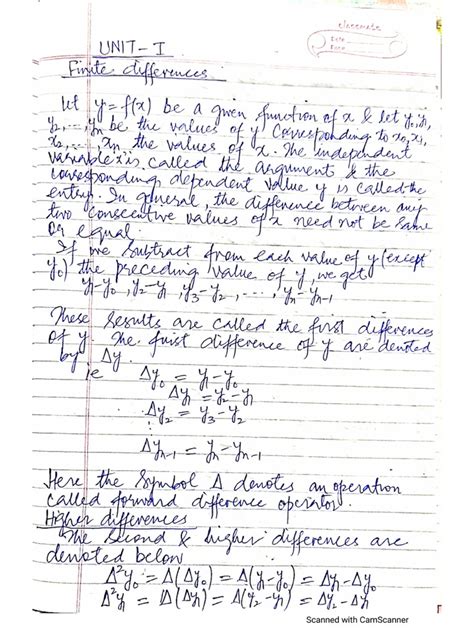 classmate
Date
Page
UNIT-I
Finite differences
Let y=f(x) be a given function of x & let y₀,y₁,
y₂,...,yₙ be the values of y corresponding to x₀,x₁,
x₂,... xₙ the values of x. The independent
variable x is called the argument & the
corresponding dependent value y is called the
entry. In general, the difference between any
two consecutive values of x need not be same
or equal.
If we subtract from each value of y (except
y₀) the preceding value of y, we get
y₁-y₀, y₂-y₁, y₃-y₂, ..., yₙ-yₙ₋₁
These results are called the first differences
of y. The first difference of y are denoted
by Δy.
ie Δy₀ = y₁-y₀
Δy₁ = y₂-y₁
Δy₂ = y₃-y₂
Δyₙ₋₁ = yₙ-yₙ₋₁
Here the symbol Δ denotes an operation
called forward difference operator.
Higher differences
The second & higher differences are
denoted below
Δ²y₀ = Δ(Δy₀) = Δ(y₁-y₀) = Δy₁-Δy₀
Δ²y₁ = Δ(Δy₁) = Δ(y₂-y₁) = Δy₂-Δy₁
Scanned with CamScanner